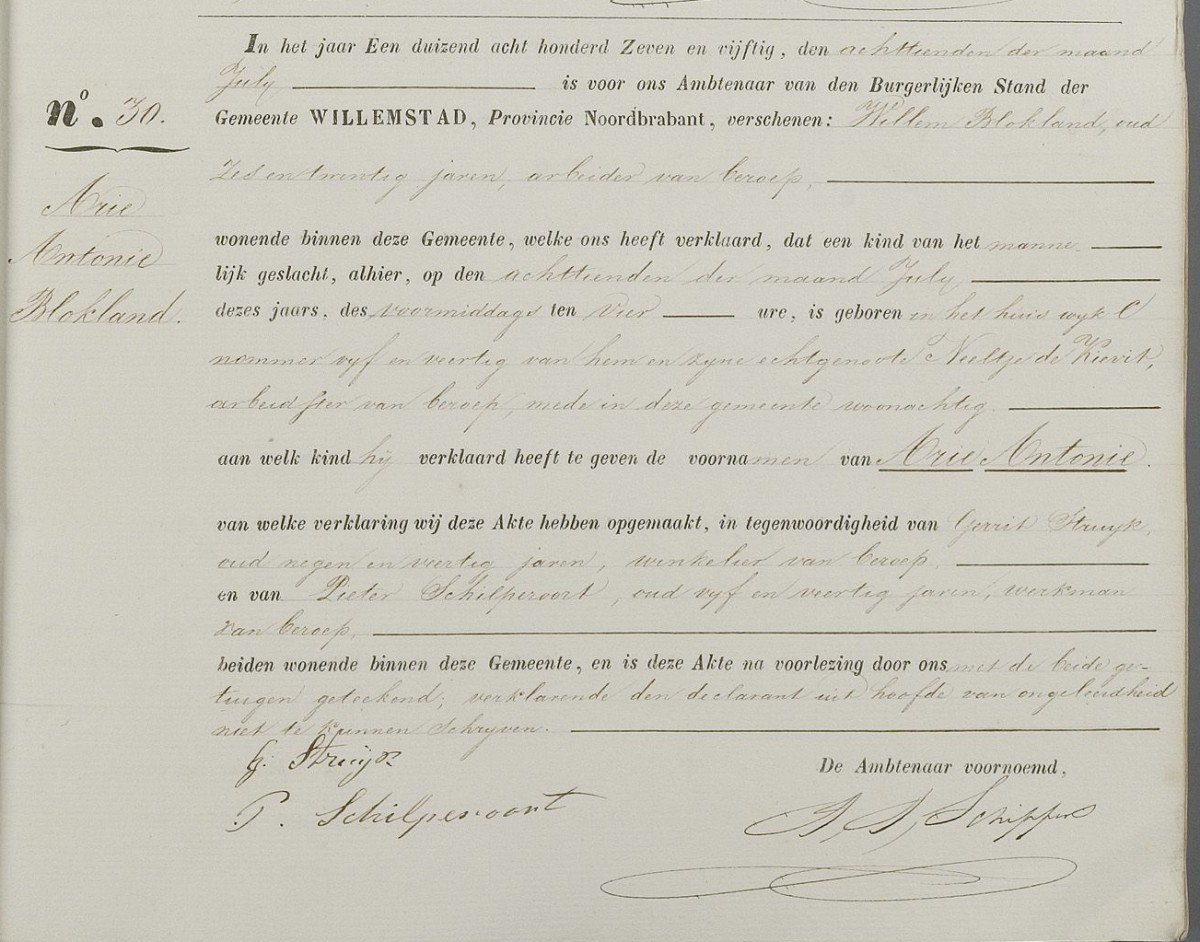 In het jaar Een duizend acht honderd Zeven en vijftig, den achttienden der maand
July is voor ons Ambtenaar van den Burgerlijken Stand der
No. 30.
Gemeente WILLEMSTAD, Provincie Noordbrabant, verschenen: Willem Blokland, oud
Zes en twintig jaren, arbeider van beroep,
Arie
Antonie
Blokland.
wonende binnen deze Gemeente, welke ons heeft verklaard, dat een kind van het manne
lijk geslacht, alhier, op den achttienden der maand July
dezes jaars, des voormiddags ten vier ure, is geboren in het huis wyk C
nommer vyf en veertig van hem en zyne echtgenoote Neeltje de Kievit,
arbeidster van beroep, mede in deze gemeente woonachtig.
aan welk kind hij verklaard heeft te geven de voornamen van Arie Antonie.
van welke verklaring wij deze Akte hebben opgemaakt, in tegenwoordigheid van Gerrit Struyk,
oud negen en veertig jaren, winkelier van beroep,
en van Pieter Schilperoort, oud vyf en veertig jaren, werkman
van beroep,
beiden wonende binnen deze Gemeente, en is deze Akte na voorlezing door ons met de beide ge-
tuigen geteekend; verklarende den declarant uit hoofde van ongeleerdheid
niet te kunnen schryven.
G. Struijk
De Ambtenaar voornoemd,
P. Schilperoort
Schippers